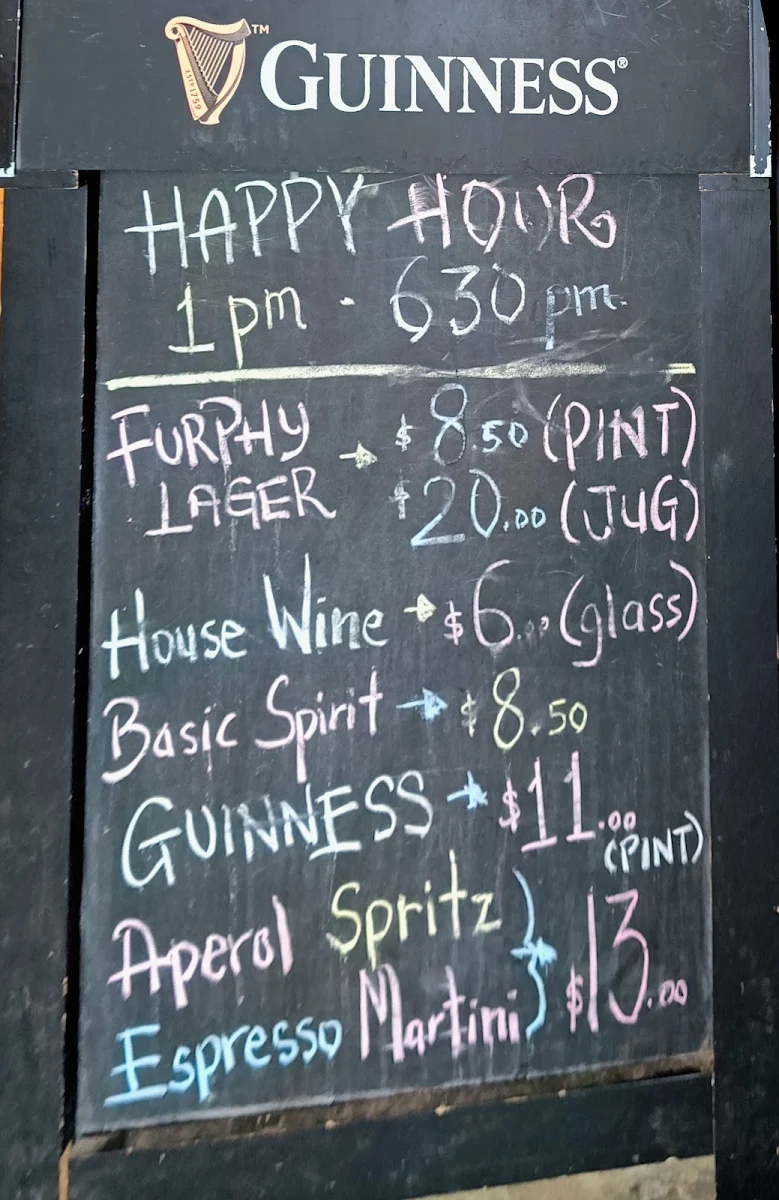 ESTD 1759 ™
GUINNESS®
HAPPY HOUR
1pm - 630 pm.
FURPHY → $8.50 (PINT)
LAGER $20.00 (JUG)
House Wine → $6.00 (glass)
Basic Spirit → $8.50
GUINNESS → $11.00
(PINT)
Aperol Spritz
Espresso Martini } → $13.00